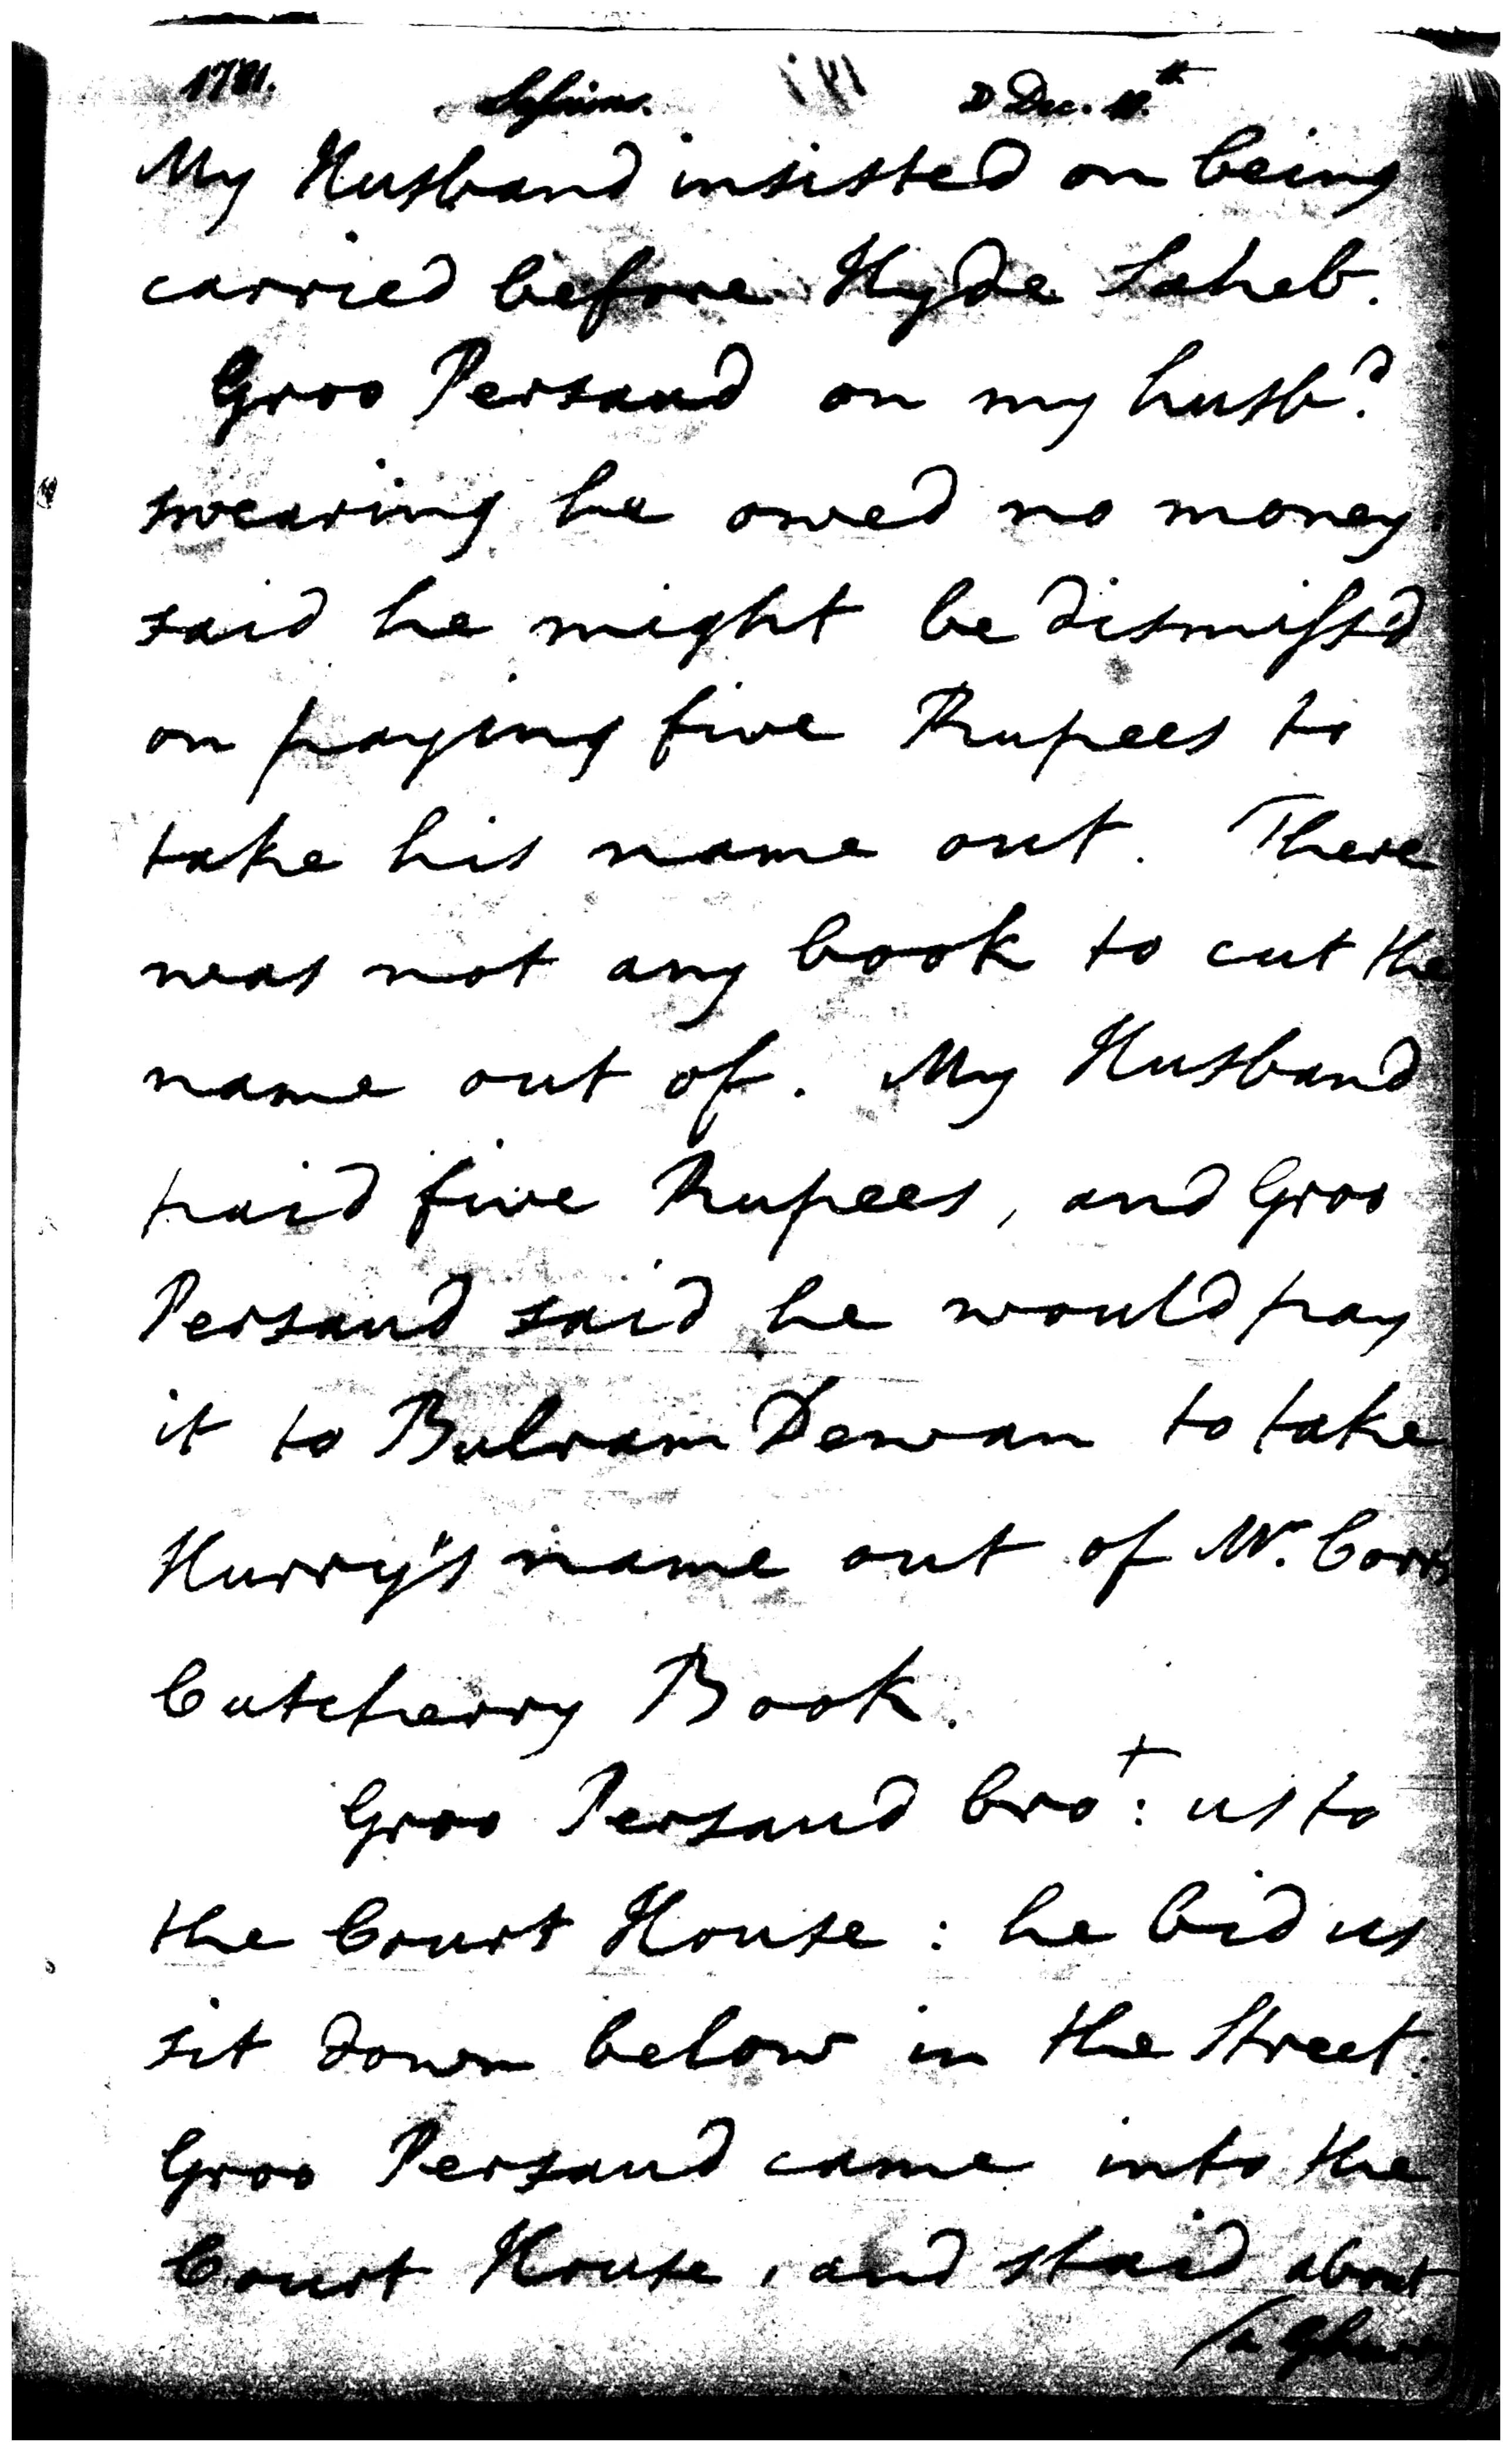 1781. Dec. 11th
My Husband insisted on being
carried before Hyde Saheb.
Groo Persaud on my husbd
swearing he owed no money
said he might be dismiss'd
on paying five Rupees to
take his name out. There
was not any book to cut the
name out of. My Husband
paid five Rupees, and Groo
Persaud said he would pay
it to Bulram Dewan to take
Hurry's name out of Mr.
Cutcherry Book.
Groo Persaud brot: us to
the Court House: he bid us
sit down below in the Street.
Groo Persaud came into the
Court House, and staid about